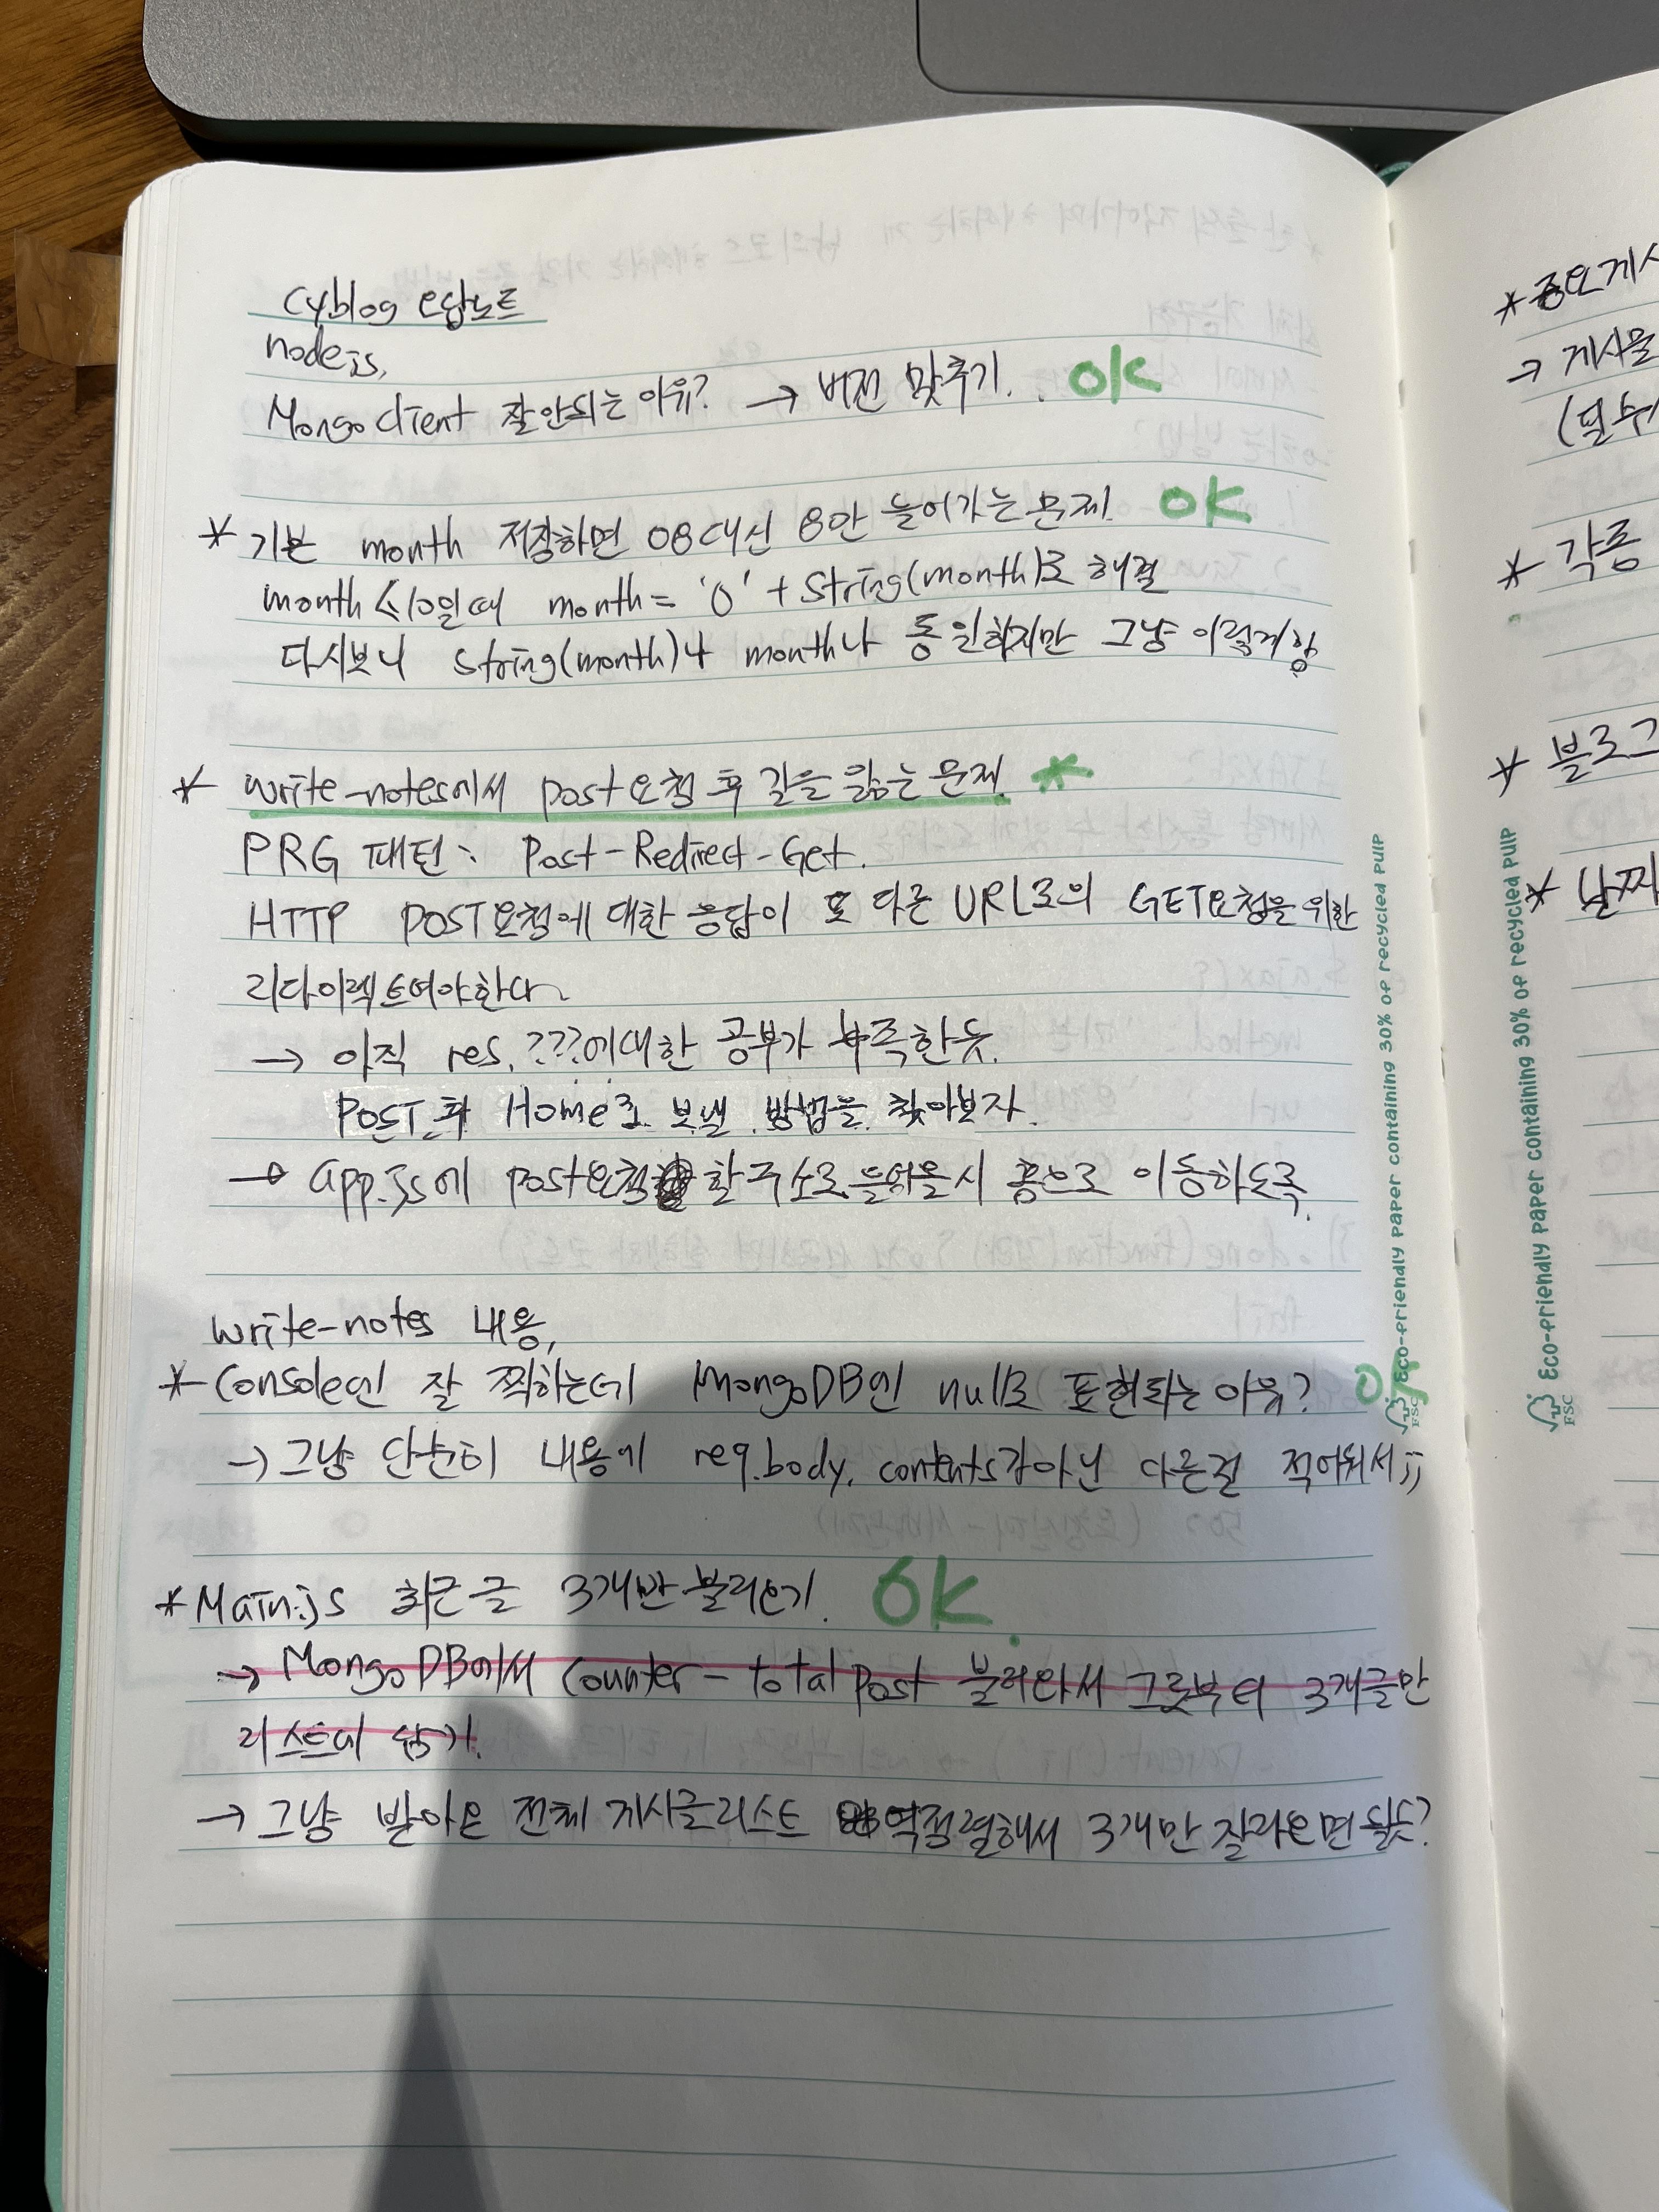 cyblog 오답노트
node.js,
MongoClient 잘안되는 이유? → 버전 맞추기. OK
* 기본 month 저장하면 08대신 8만 들어가는 문제. OK
month<10일때 month = '0' + String(month)로 해결
다시보니 String(month)나 month나 동일하지만 그냥 이렇게함
* write-notes에서 post요청 후 길을 잃는 문제. *
PRG 패턴: Post-Redirect-Get.
HTTP POST요청에 대한 응답이 또 다른 URL로의 GET요청을 위한
리다이렉트여야한다
→ 아직 res.???에대한 공부가 부족한듯.
POST 후 Home로 보낼 방법을 찾아보자.
→ app.js에 post요청 할 주소로 들어올시 홈으로 이동하도록.
write-notes 내용,
* Console엔 잘 찍히는데 MongoDB엔 null로 표현되는 이유? OK
→ 그냥 단순히 내용에 req.body.contents값아닌 다른걸 적어둬서;;
* Main.js 최근글 3개만 불러오기. OK.
→ MongoDB에서 counter-totalPost 불러와서 그곳부터 3개글만
리스트에 담기.
→ 그냥 받아온 전체 게시글리스트 역정렬해서 3개만 잘라오면 될듯?
Eco-friendly paper containing 30% of recycled pulp
FSC
* 중요게시
→ 게시물
(필수
* 각종
* 블로그
* 날짜
Eco-friendly paper containing 30% of recycled pulp
FSC